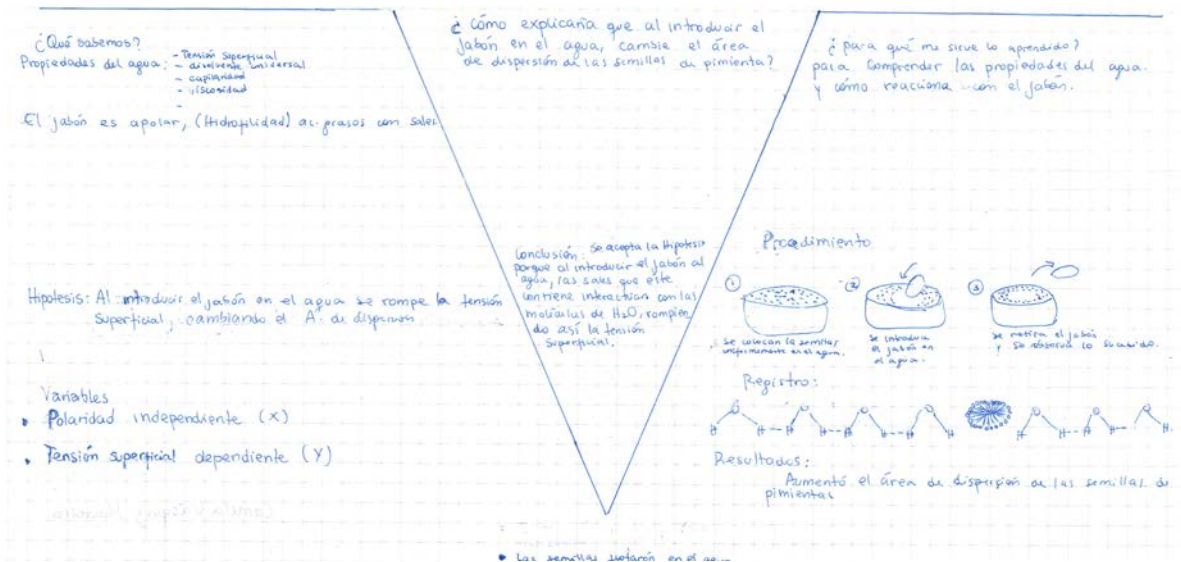 ¿Qué sabemos?
Propiedades del agua: - Tensión superficial
- disolvente universal
- capilaridad
- viscosidad
-
El jabón es apolar, (Hidrofilidad) ac. grasos con sales
Hipotesis: Al introducir el jabón en el agua se rompe la tensión
superficial, cambiando el A° de dispersión
Variables
• Polaridad independiente (X)
• Tensión superficial dependiente (Y)
¿Cómo explicaría que al introducir el
jabón en el agua, cambie el área
de dispersión de las semillas de pimienta?
Conclusión: Se acepta la Hipotesis
porque al introducir el jabón al
agua, las sales que este
contiene interactúan con las
moléculas de H₂O, rompien
do así la tensión
superficial.
• Las semillas flotarón en el agua
¿para qué me sirve lo aprendido?
para comprender las propiedades del agua.
y cómo reacciona con el jabón.
Procedimiento
① ② ③
Se colocan la semillas
uniformemente en el agua.
Se introduce
el jabón en
el agua.
Se retira el jabón
y se observa lo sucedido.
Registro:
O O O O O O O
H H--H H--H H--H H H H--H H--H H
Resultados:
Aumentó el área de dispersión de las semillas de
pimientas